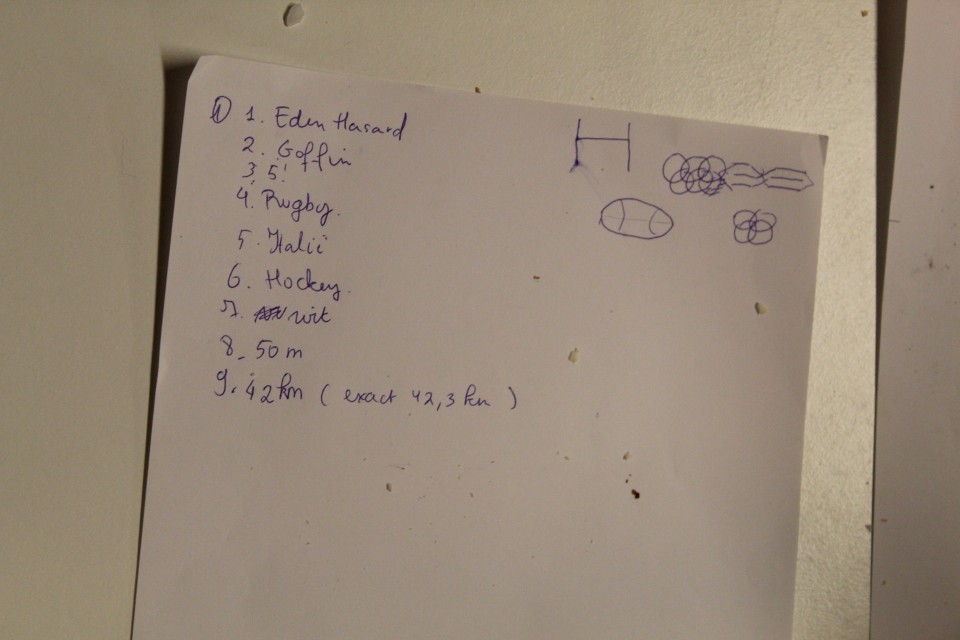 ① 1. Eden Hasard
2. Goffin
3. 5!
4. Rugby.
5. Italië
6. Hockey.
7. wit
8. 50 m
9. 42 km ( exact 42,3 km )